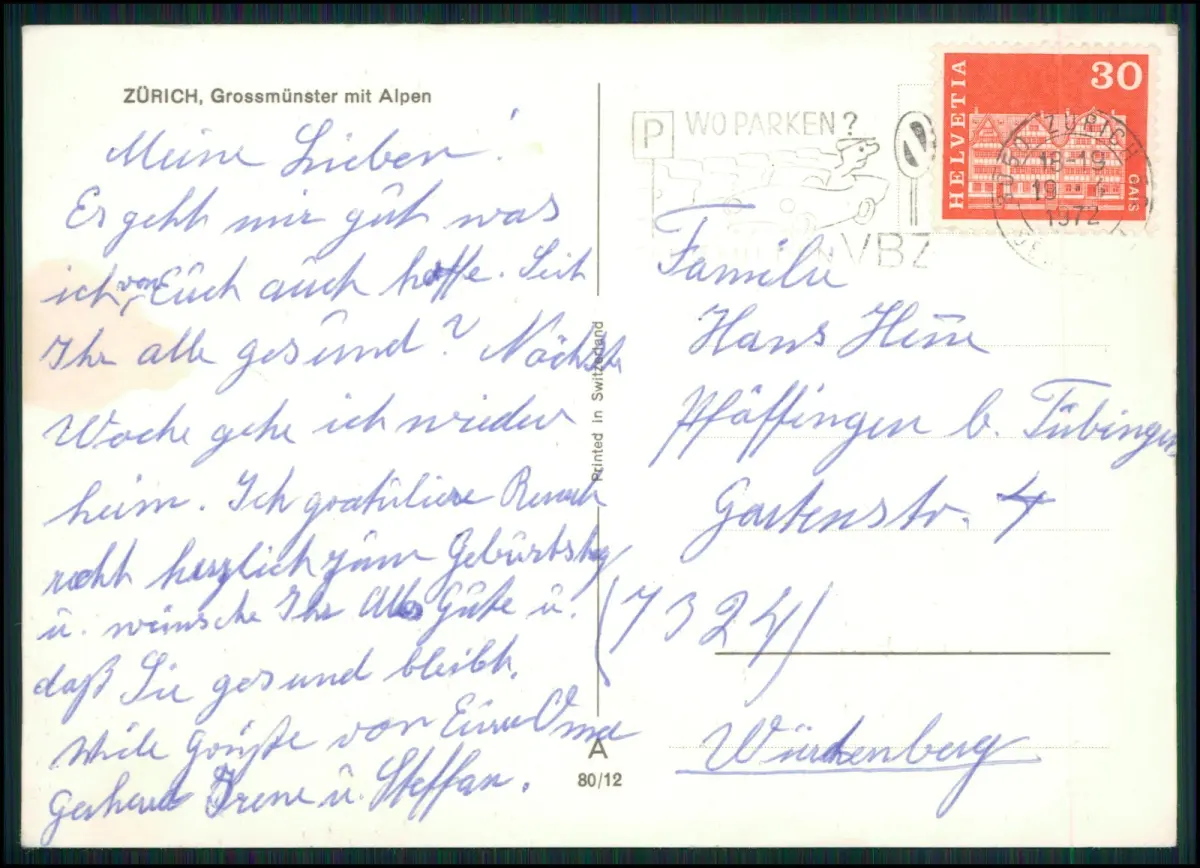 ZÜRICH, Grossmünster mit Alpen
Meine Lieben!
Es geht mir gut was
ich von Euch auch hoffe. Seit
Ihr alle gesund? Nächste
Woche gehe ich wieder
heim. Ich gratuliere Renate
recht herzlich zum Geburtstag
u. wünsche Ihr Alles Gute u.
daß Sie gesund bleibt.
Viele Grüße von Eure Oma
Gerhard Irene u. Steffan.
Printed in Switzerland
A
80/12
P WO PARKEN?
VBZ
HELVETIA
30
GAIS
ZÜRICH
18-19
1972
Familie
Hans
Pfäffingen b. Tübingen
Gartenstr. 4
(7324)
Württenberg